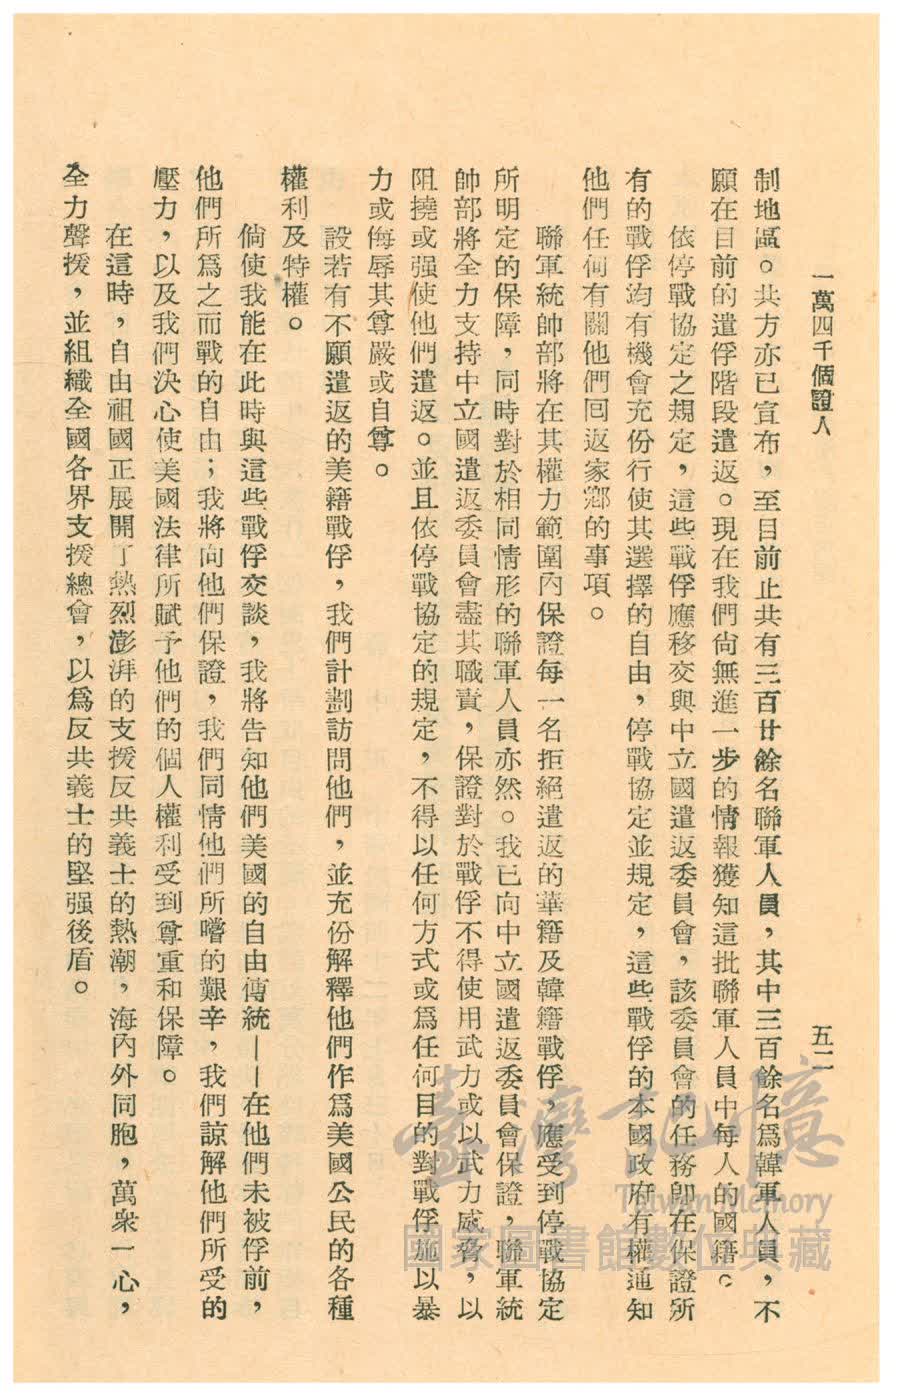 一萬四千個證人
五二
制地區。共方亦已宣布，至目前止共有三百廿餘名聯軍人員，其中三百餘名爲韓軍人員，不
願在目前的遣俘階段遣返。現在我們尙無進一步的情報獲知這批聯軍人員中每人的國籍。
依停戰協定之規定，這些戰俘應移交與中立國遣返委員會，該委員會的任務卽在保證所
有的戰俘均有機會充份行使其選擇的自由，停戰協定並規定，這些戰俘的本國政府有權通知
他們任何有關他們囘返家鄕的事項。
聯軍統帥部將在其權力範圍內保證每一名拒絕遣返的華籍及韓籍戰俘，應受到停戰協定
所明定的保障，同時對於相同情形的聯軍人員亦然。我已向中立國遣返委員會保證，聯軍統
帥部將全力支持中立國遣返委員會盡其職責，保證對於戰俘不得使用武力或以武力威脅，以
阻撓或强使他們遣返。並且依停戰協定的規定，不得以任何方式或爲任何目的對戰俘施以暴
力或侮辱其尊嚴或自尊。
設若有不願遣返的美籍戰俘，我們計劃訪問他們，並充份解釋他們作爲美國公民的各種
權利及特權。
倘使我能在此時與這些戰俘交談，我將告知他們美國的自由傳統——在他們未被俘前，
他們所爲之而戰的自由；我將向他們保證，我們同情他們所嚐的艱辛，我們諒解他們所受的
壓力，以及我們決心使美國法律所賦予他們的個人權利受到尊重和保障。
在這時，自由祖國正展開了熱烈澎湃的支援反共義士的熱潮，海內外同胞，萬衆一心，
全力聲援，並組織全國各界支援總會，以爲反共義士的堅强後盾。
臺灣記憶
Taiwan Memory
國家圖書館數位典藏